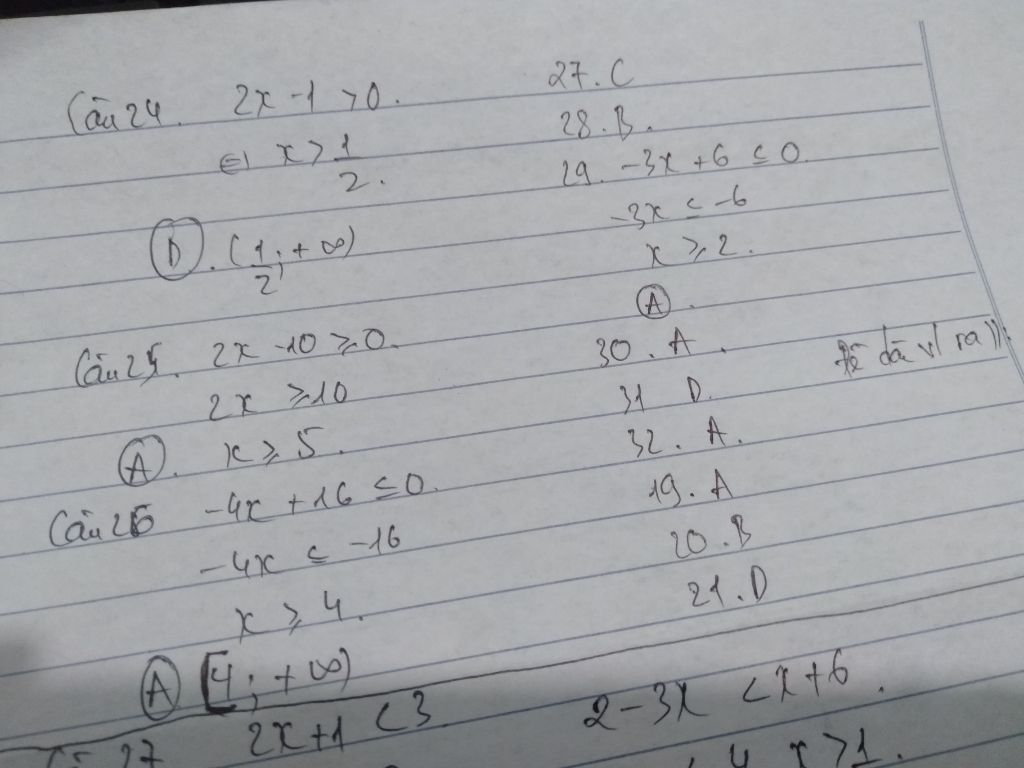 Câu 24. 2x - 1 > 0.
⇔ x > 1/2.
D. (1/2; +∞)
Câu 25. 2x - 10 ≥ 0.
2x ≥ 10
A. x ≥ 5.
Câu 26 -4x + 16 ≤ 0.
-4x ≤ -16
x ≥ 4.
A [4; +∞)
27 2x + 1 < 3
27. C
28. B.
29. -3x + 6 ≤ 0.
-3x ≤ -6
x ≥ 2.
A.
30. A.
31 D.
32. A.
19. A
20. B
21. D
2 - 3x < x + 6.
x > 1.